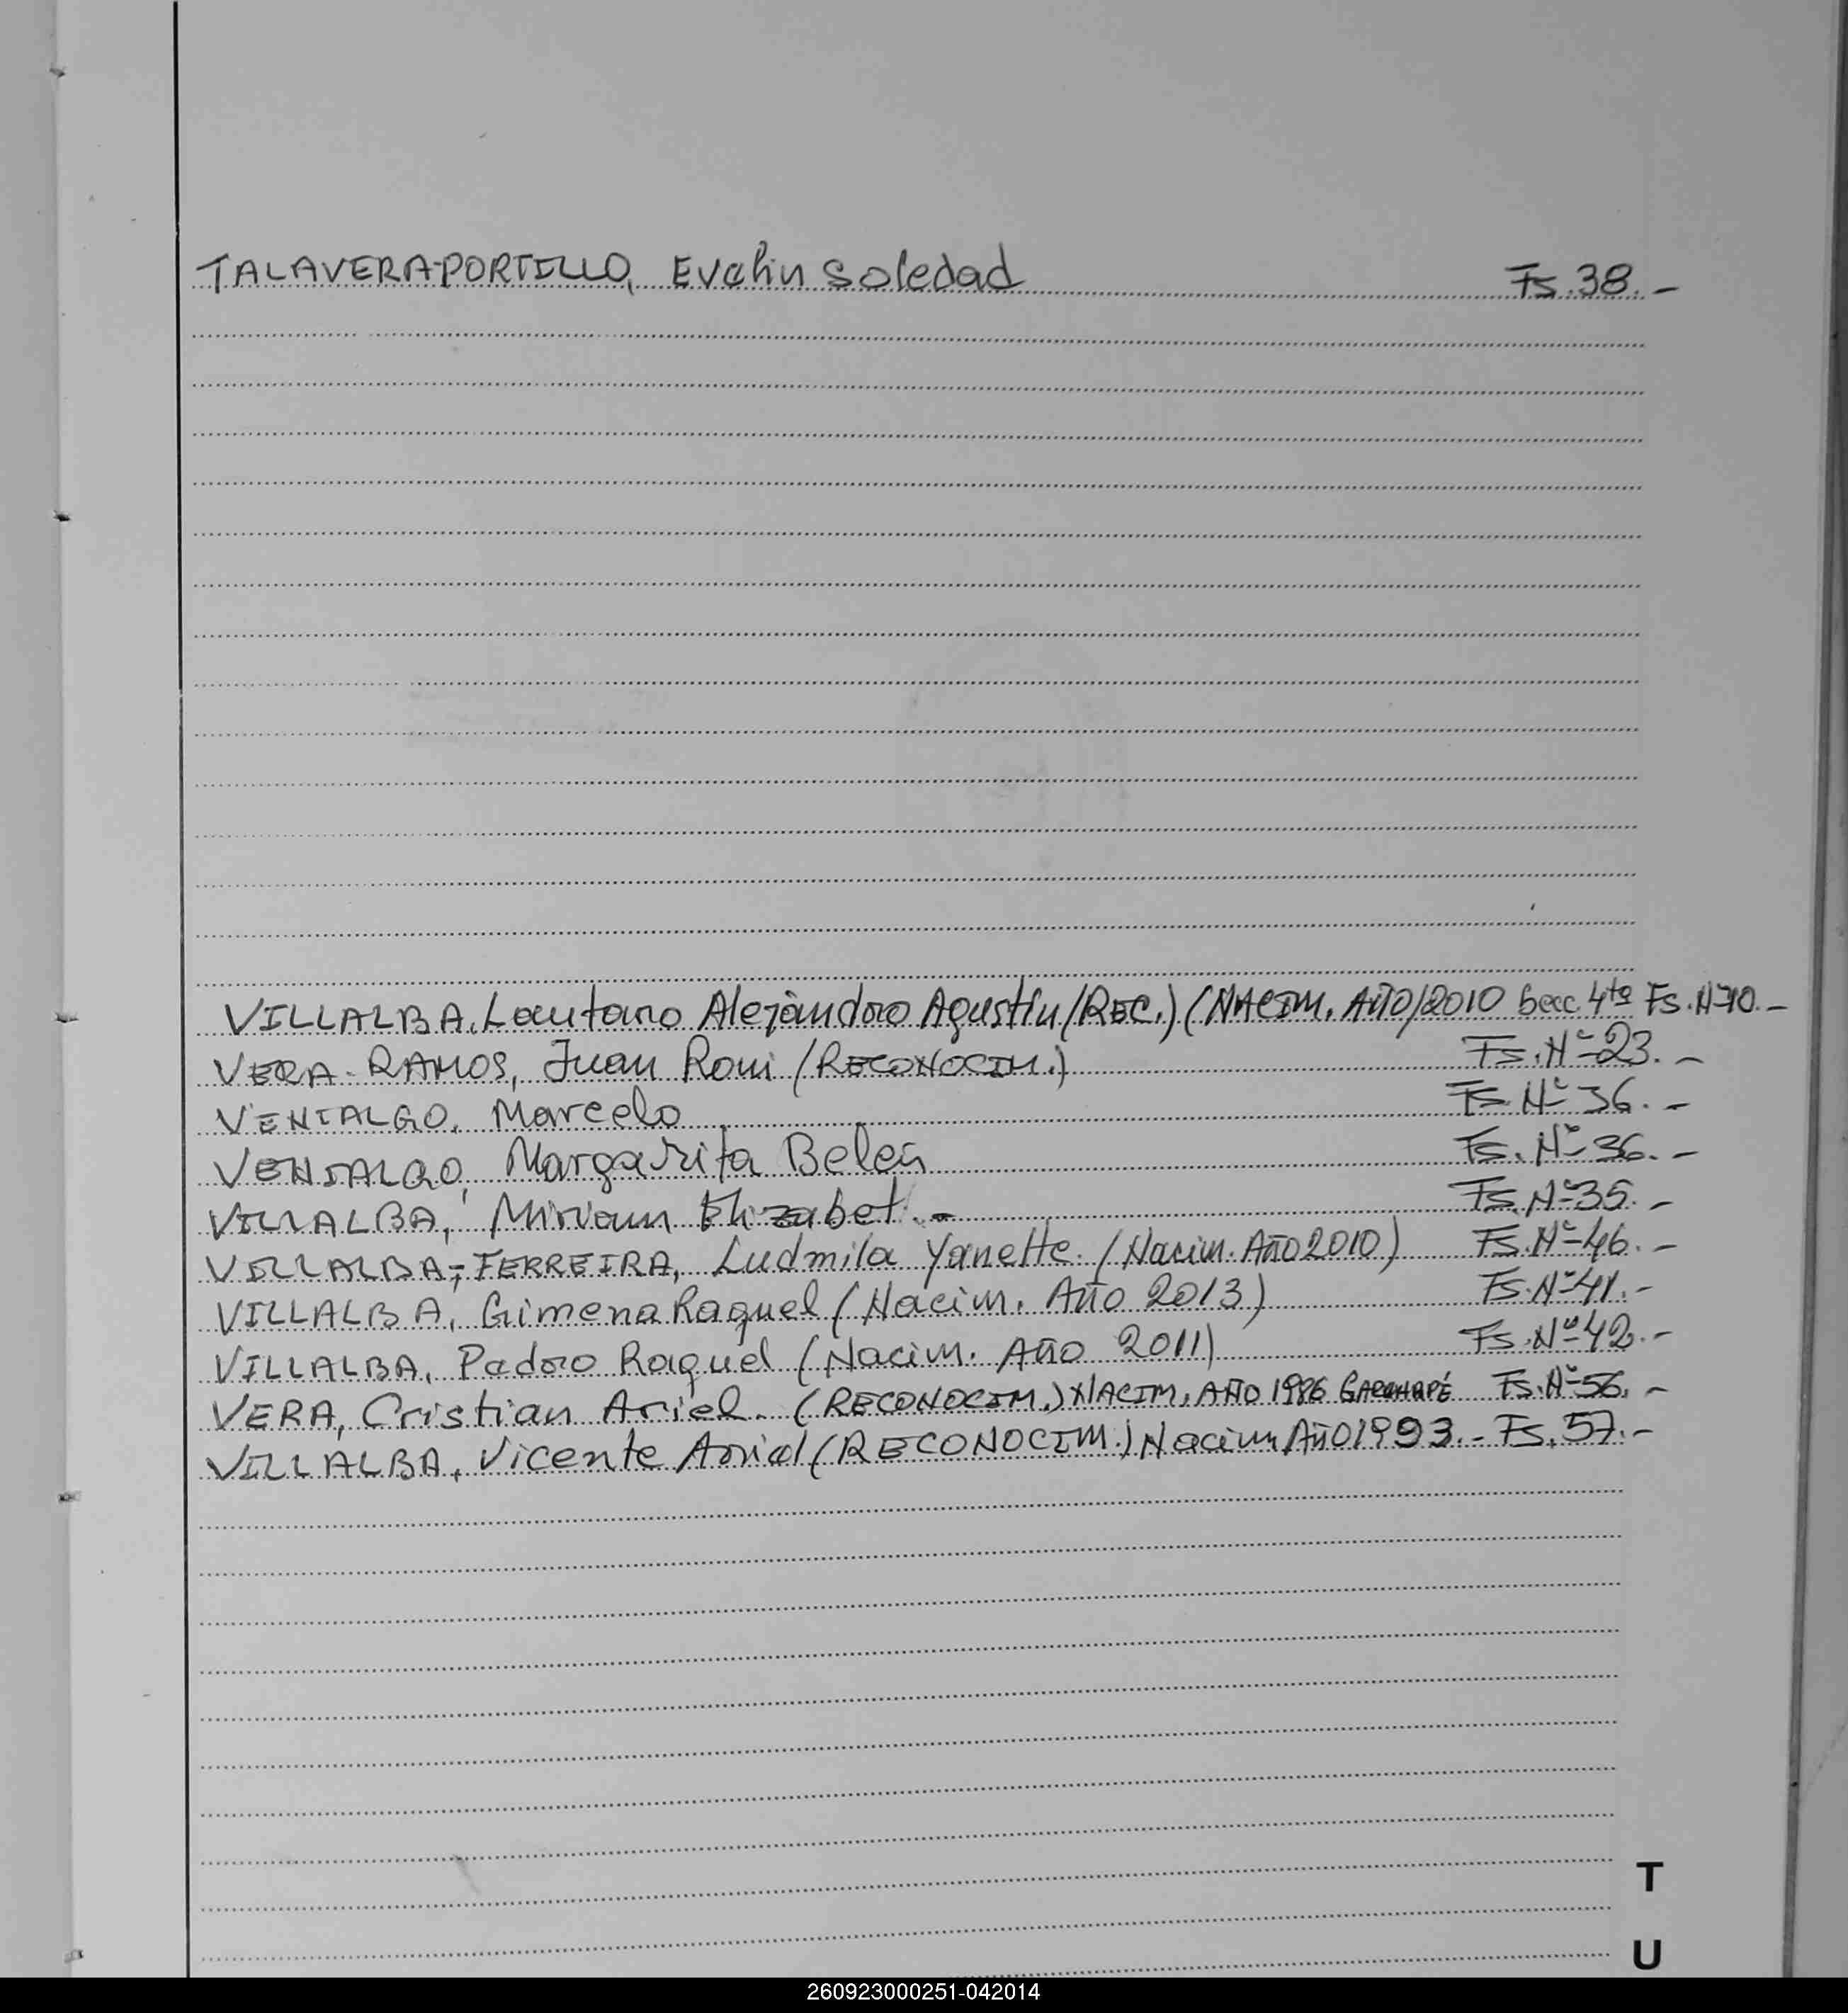 TALAVERA-PORTILLO, Evelin Soledad Fs.38.-
VILLALBA, Lautaro Alejandro Agustín (REC.) (NACIM. AÑO/2010 Secc. 4ta Fs. Nº 10.-
VERA-RAMOS, Juan Roni (RECONOCIM.) Fs. Nº 23.-
VENIALGO, Marcelo Fs. Nº 36.-
VENIALGO, Margarita Belén Fs. Nº 36.-
VILLALBA, Miriam Elizabet.- Fs. Nº 35.-
VILLALBA-FERREIRA, Ludmila Yanette. (Nacim. Año 2010) Fs. Nº 46.-
VILLALBA, Gimena Raquel (Nacim. Año 2013) Fs. Nº 41.-
VILLALBA, Pedro Raquel (Nacim. Año 2011) Fs. Nº 42.-
VERA, Cristian Ariel. (RECONOCIM.) NACIM. AÑO 1986 GARUHAPÉ Fs. Nº 56.-
VILLALBA, Vicente Ariel (RECONOCIM.) Nacim. Año 1993.- Fs. 57.-
T
U
260923000251-042014